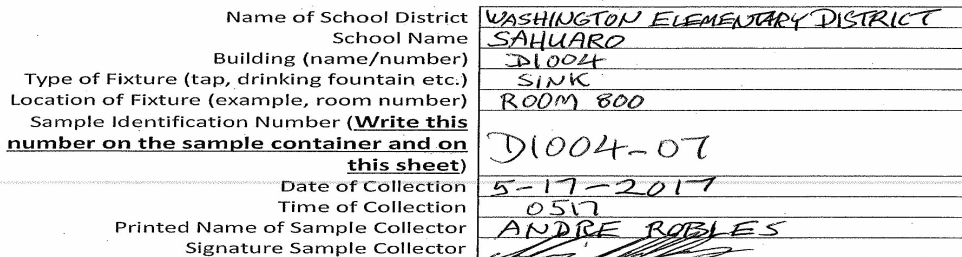 Name of School District WASHINGTON ELEMENTARY DISTRICT
School Name SAHUARO
Building (name/number) D1004
Type of Fixture (tap, drinking fountain etc.) SINK
Location of Fixture (example, room number) ROOM 800
Sample Identification Number (Write this
number on the sample container and on D1004-07
this sheet)
Date of Collection 5-17-2017
Time of Collection 0517
Printed Name of Sample Collector ANDRE ROBLES
Signature Sample Collector